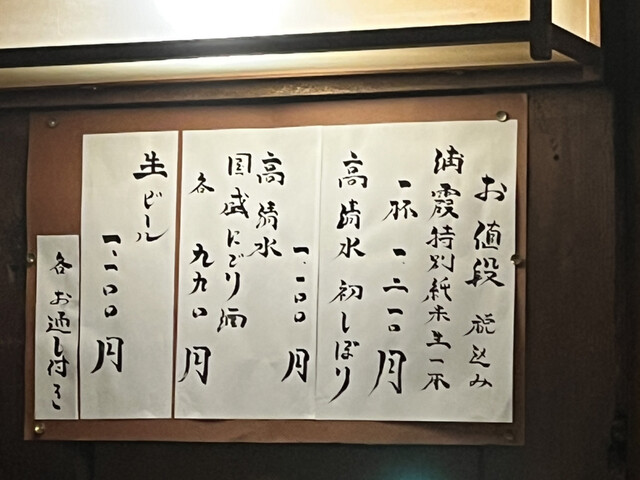 お値段 税込み
浦霞特別純米生一本
一杯 一、二一〇円
高清水 初しぼり
一、一〇〇円
高清水
国盛にごり酒
各 九九〇円
生ビール
一、一〇〇円
各 お通し付き